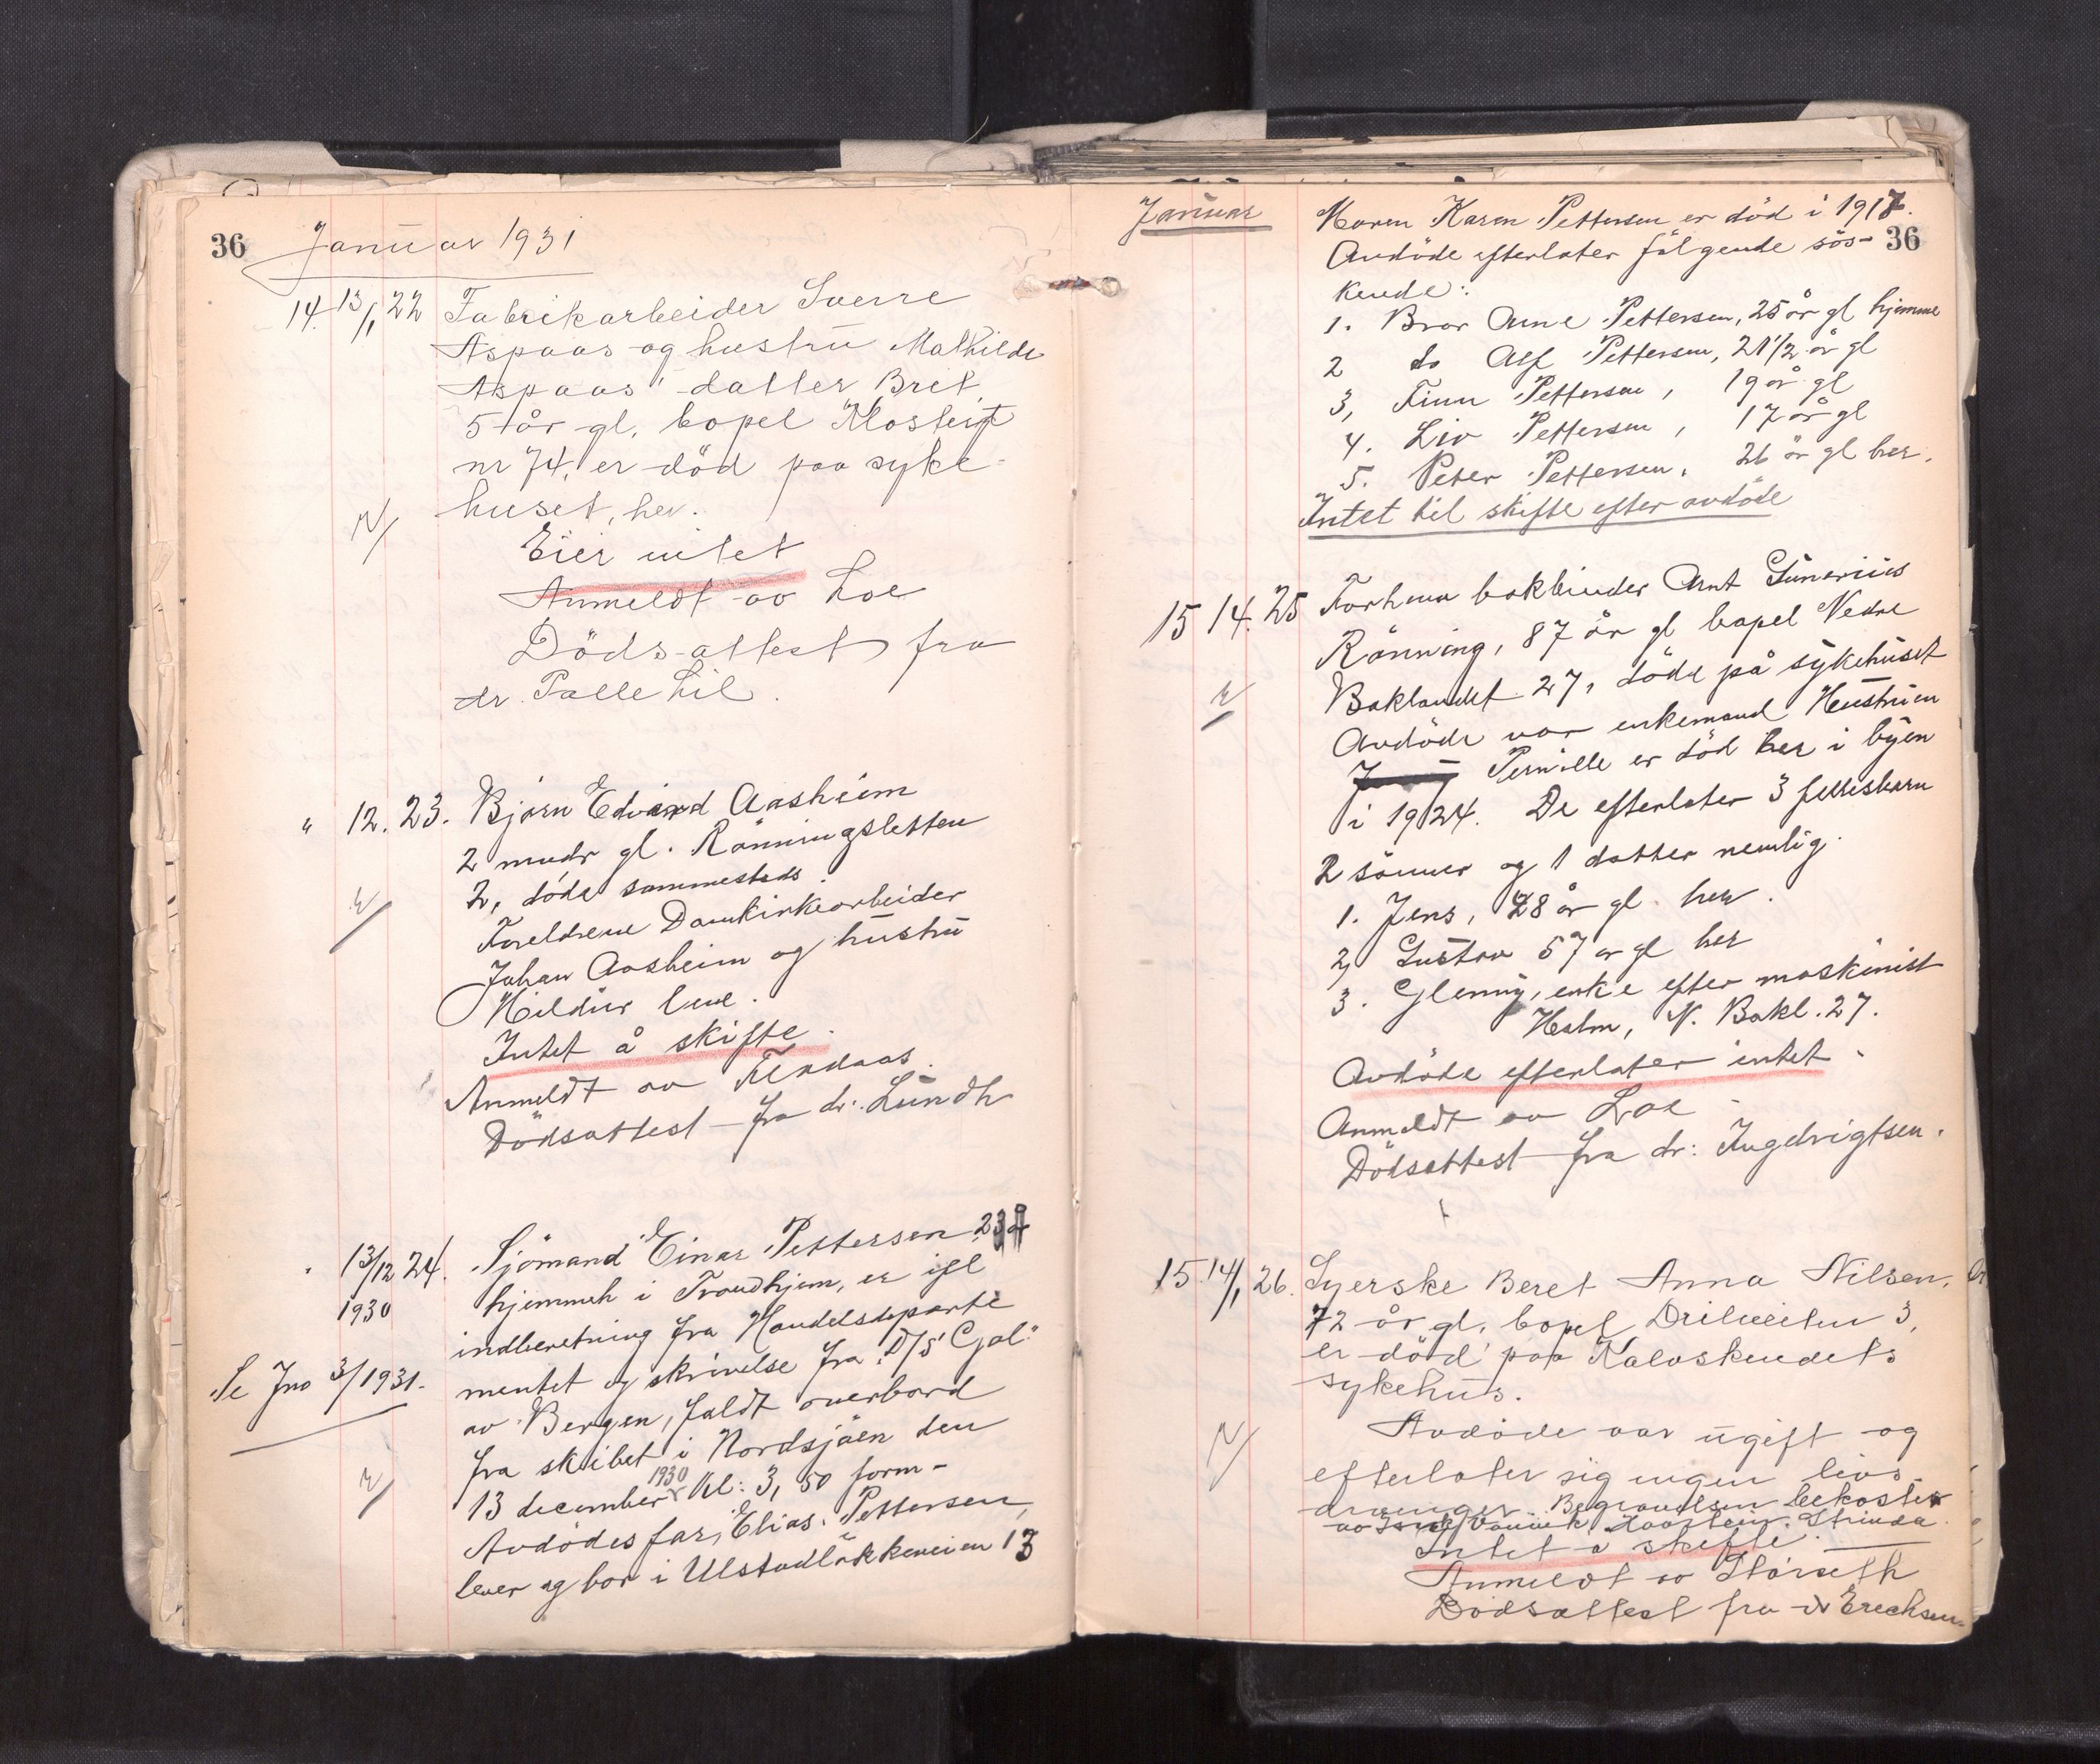 36 Januar 1931
14. 13/1 22 Fabrikarbeider Sverre
Aspaas og hustru Mathilde
Aspaas' datter Brit
5 år gl. bopel Klostergt
nr 74, er död paa syke-
huset, her.
Eier intet
Anmeldt av Loe
Dödsattest fra
dr. Pallehil.
" 12. 23. Bjarn Edvard Aasheim
2 mndr gl. Rönningsletten
2, döde sammesteds.
Foreldrene Domkirkearbeider
Johan Aasheim og hustru
Hildur
Intet å skifte.
Anmeldt av
Dödsattest fra dr. Lundh
13/12 24. Sjömand Einar Pettersen
1930 hjemmeh i Trondhjem, er ifl
indberetning fra Handelsdeparte
mentet og skrivelse fra D/S "Gol"
Se Jno 3/1931.
av Bergen, faldt overbord
fra skibet i Nordsjöen den
13 december 1930 kl: 3,50 form-
Avdödes far, Elias Pettersen,
lever og bor i Ulstadlökkeveien 13
Januar
36
Maren Karen Pettersen er död i 1917.
Avdöde efterlater fölgende sös-
kende:
1. Bror Arne Pettersen, 25 år gl hjemme
2 do Alf Pettersen, 21 1/2 år gl
3, Finn Pettersen, 19 år gl
4. Liv Pettersen, 17 år gl
5. Peter Pettersen, 26 år gl her.
Intet til skifte efter avdöde
15 14. 25 Forhenv bokbinder Arnt
Rönning, 87 år gl bopel Nedre
Baklandet 27, döde på sykehuset
Avdöde var enkemand Hustruen
Pernille er död her i byen
i 1924. De efterlater 3 fellesbarn
2 sönner og 1 datter nemlig.
1. Jens, 48 år gl. her.
2, Gustav 57 år gl her
3. Glenny, enke efter maskinist
Holm, N. Bakl. 27.
Avdöde efterlater intet.
Anmeldt av Loe
Dödsattest fra dr: Ingebrigtsen.
15 14/1 26. Syerske Beret Anna Nilsen,
72 år gl. bopel Drilveiten 3,
er död paa Kalvskindets
sykehus.
Avdöde var ugift og
efterlater sig ingen livs-
arvinger. Begravelsen bekostes
av Strinda.
Intet å skifte.
Anmeldt av Storseth
Dödsattest fra dr Erichsen.